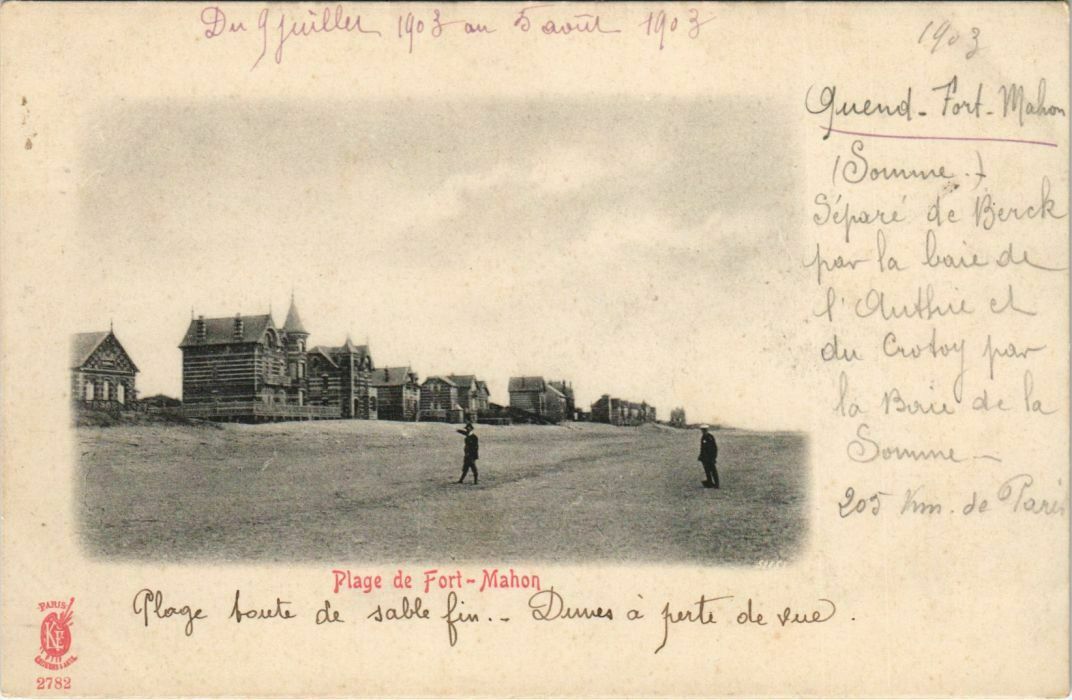 Du 9 juillet 1903 au 5 août 1903
1903
Quend-Fort-Mahon
(Somme.)
Séparé de Berck
par la baie de
l'Authie et
du Crotoy par
la Baie de la
Somme -
205 Km. de Paris
Plage de Fort-Mahon
Plage toute de sable fin.. Dunes à perte de vue.
PARIS
KF
2782